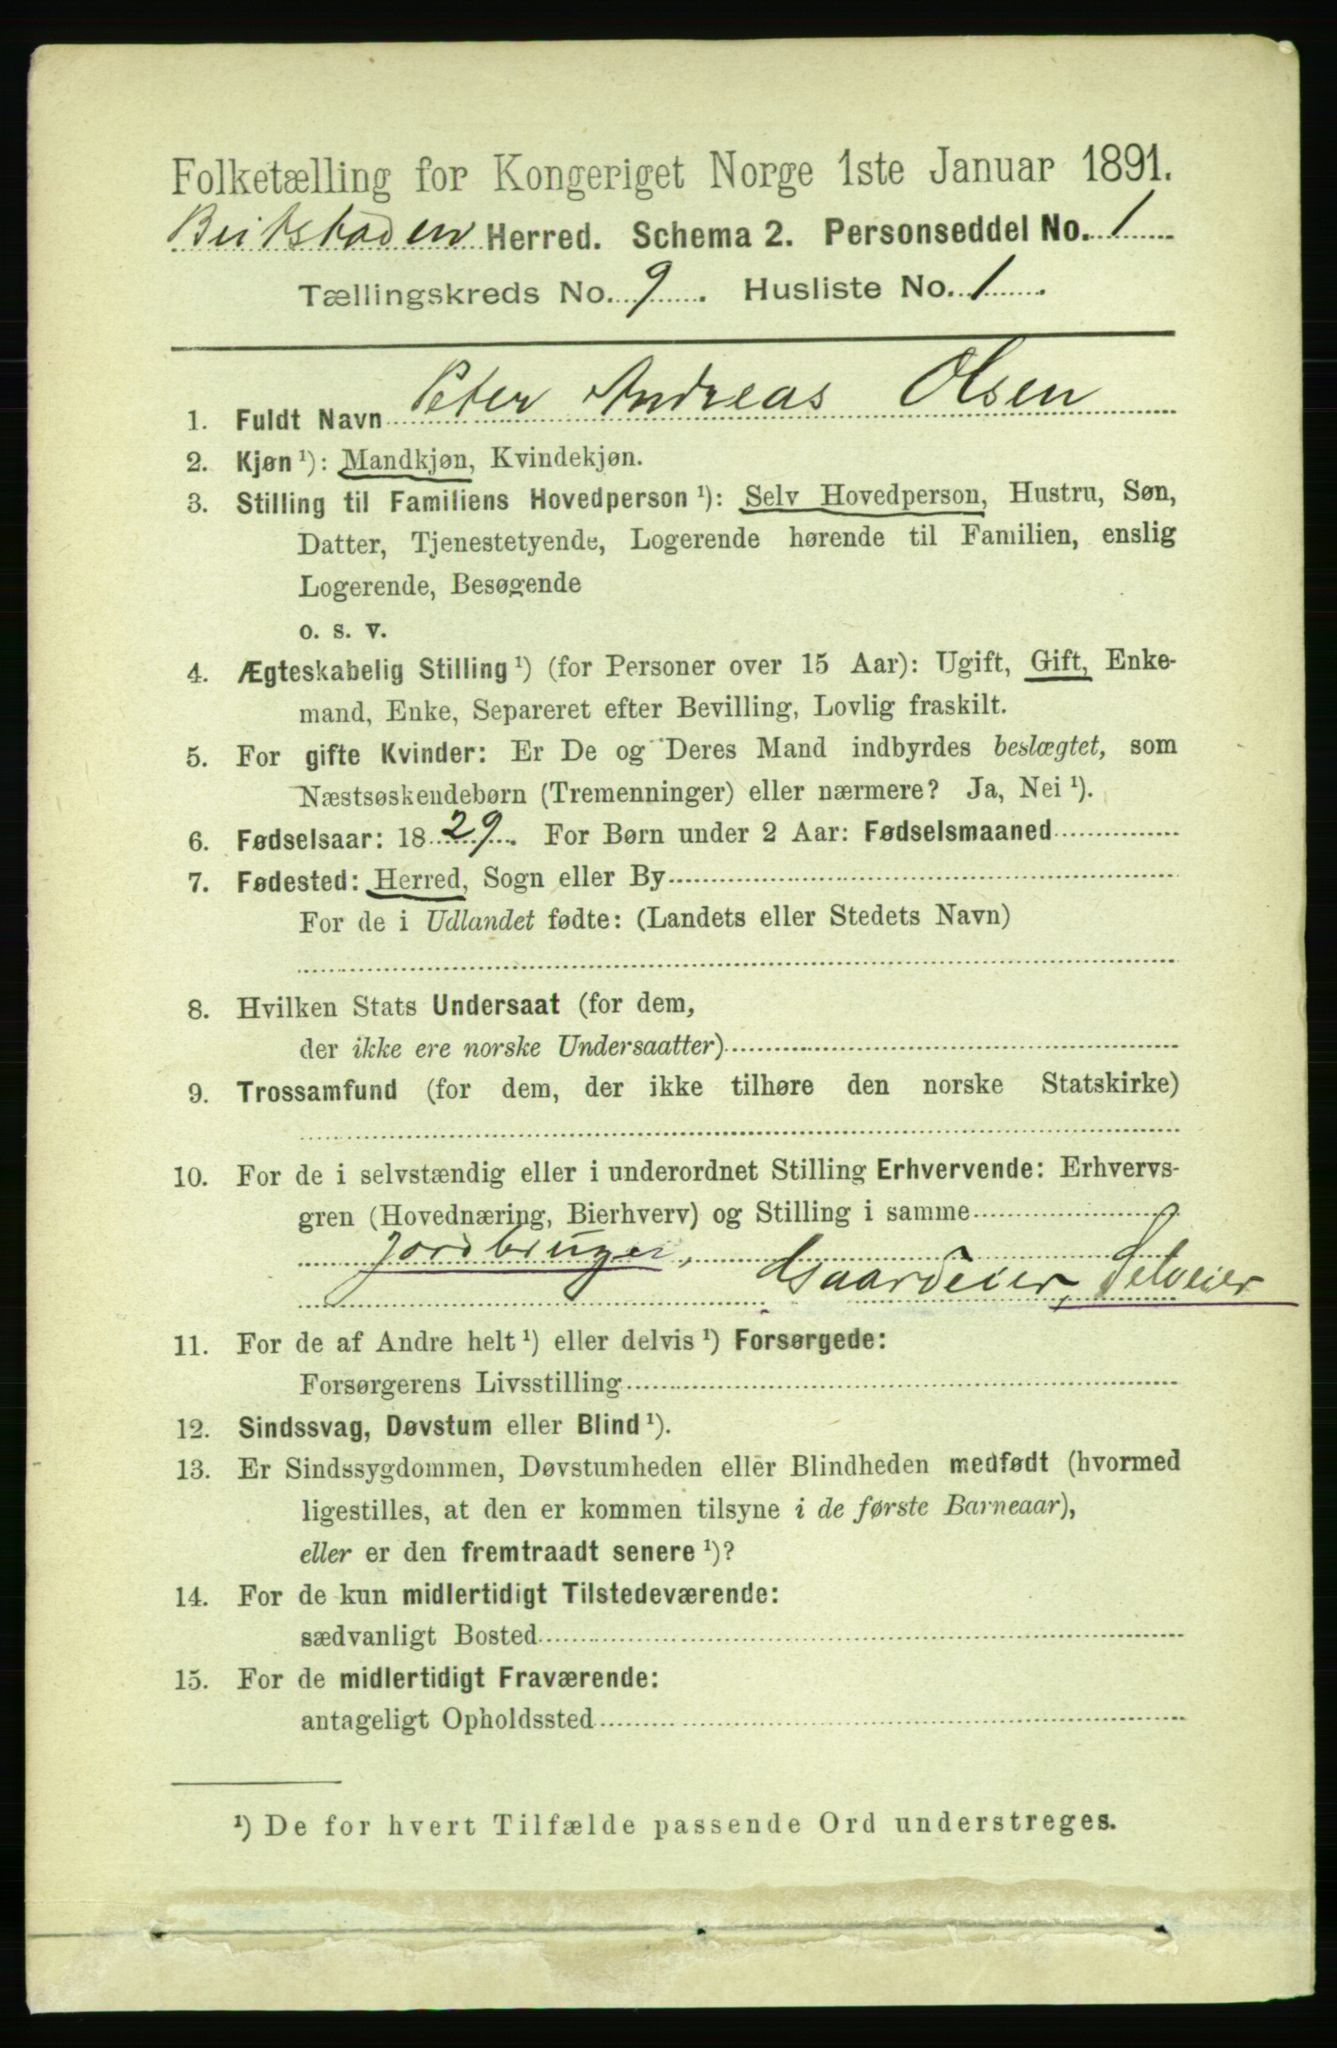 Folketælling for Kongeriget Norge 1ste Januar 1891.
Beitstaden Herred. Schema 2. Personseddel No. 1
Tællingskreds No. 9. Husliste No. 1.
1. Fuldt Navn Peter Andreas Olsen
2. Kjøn ¹): Mandkjøn, Kvindekjøn.
3. Stilling til Familiens Hovedperson ¹): Selv Hovedperson, Hustru, Søn,
Datter, Tjenestetyende, Logerende hørende til Familien, enslig
Logerende, Besøgende
o. s. v.
4. Ægteskabelig Stilling ¹) (for Personer over 15 Aar): Ugift, Gift, Enke-
mand, Enke, Separeret efter Bevilling, Lovlig fraskilt.
5. For gifte Kvinder: Er De og Deres Mand indbyrdes beslægtet, som
Næstsøskendebørn (Tremenninger) eller nærmere? Ja, Nei ¹).
6. Fødselsaar: 1829. For Børn under 2 Aar: Fødselsmaaned
7. Fødested: Herred, Sogn eller By
For de i Udlandet fødte: (Landets eller Stedets Navn)
8. Hvilken Stats Undersaat (for dem,
der ikke ere norske Undersaatter)
9. Trossamfund (for dem, der ikke tilhøre den norske Statskirke)
10. For de i selvstændig eller i underordnet Stilling Erhvervende: Erhvervs-
gren (Hovednæring, Bierhverv) og Stilling i samme
Jordbruger,
Gaardeier, Selveier
11. For de af Andre helt ¹) eller delvis ¹) Forsørgede:
Forsørgerens Livsstilling
12. Sindssvag, Døvstum eller Blind ¹).
13. Er Sindssygdommen, Døvstumheden eller Blindheden medfødt (hvormed
ligestilles, at den er kommen tilsyne i de første Barneaar),
eller er den fremtraadt senere ¹)?
14. For de kun midlertidigt Tilstedeværende:
sædvanligt Bosted
15. For de midlertidigt Fraværende:
antageligt Opholdssted
¹) De for hvert Tilfælde passende Ord understreges.